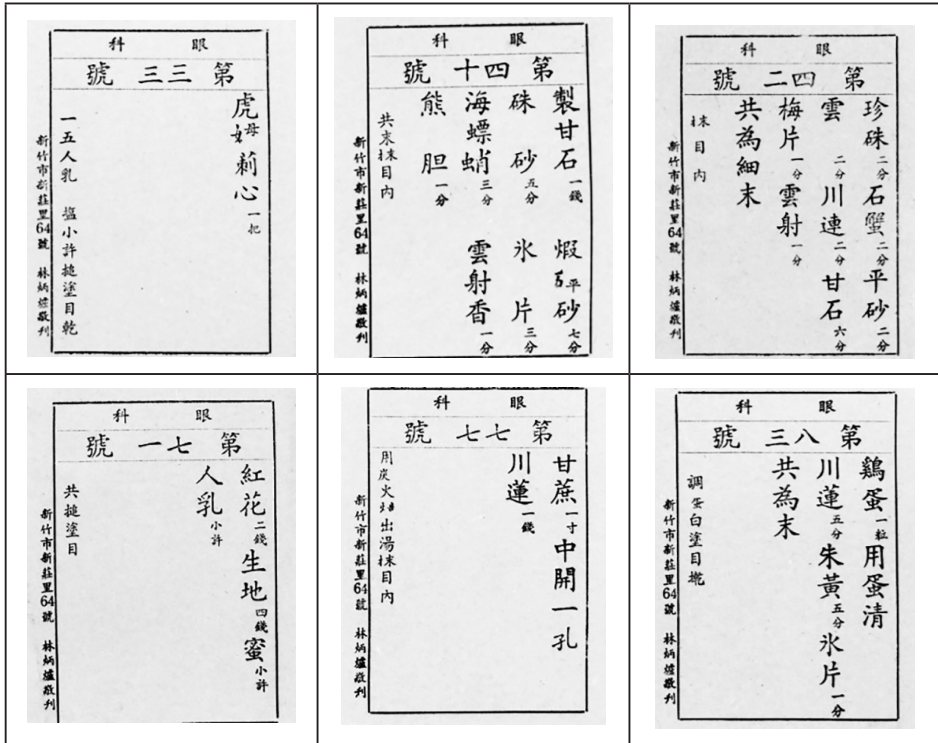 眼科
第三三號
虎母莿心一把
一五人乳 塩小許搥塗目乾
新竹市新莊里64號 林炳爐敬刊
眼科
第四十號
製甘石一錢 煆平砂七分
硃砂五分 氷片三分
海螵蛸三分 雲射香一分
熊胆一分
共末抹目內
新竹市新莊里64號 林炳爐敬刊
眼科
第四二號
珍硃二分 石蟹二分 平砂二分
雲二分 川連二分 甘石六分
梅片一分 雲射一分
共為細末
抹目內
新竹市新莊里64號 林炳爐敬刊
眼科
第七一號
紅花二錢 生地四錢 蜜小許
人乳小許
共搥塗目
新竹市新莊里64號 林炳爐敬刊
眼科
第七七號
甘蔗一寸中開一孔
川蓮一錢
用炭火出湯抹目內
新竹市新莊里64號 林炳爐敬刊
眼科
第八三號
鷄蛋一粒用蛋清
川蓮五分 朱黃五分 氷片一分
共為末
調蛋白塗目
新竹市新莊里64號 林炳爐敬刊